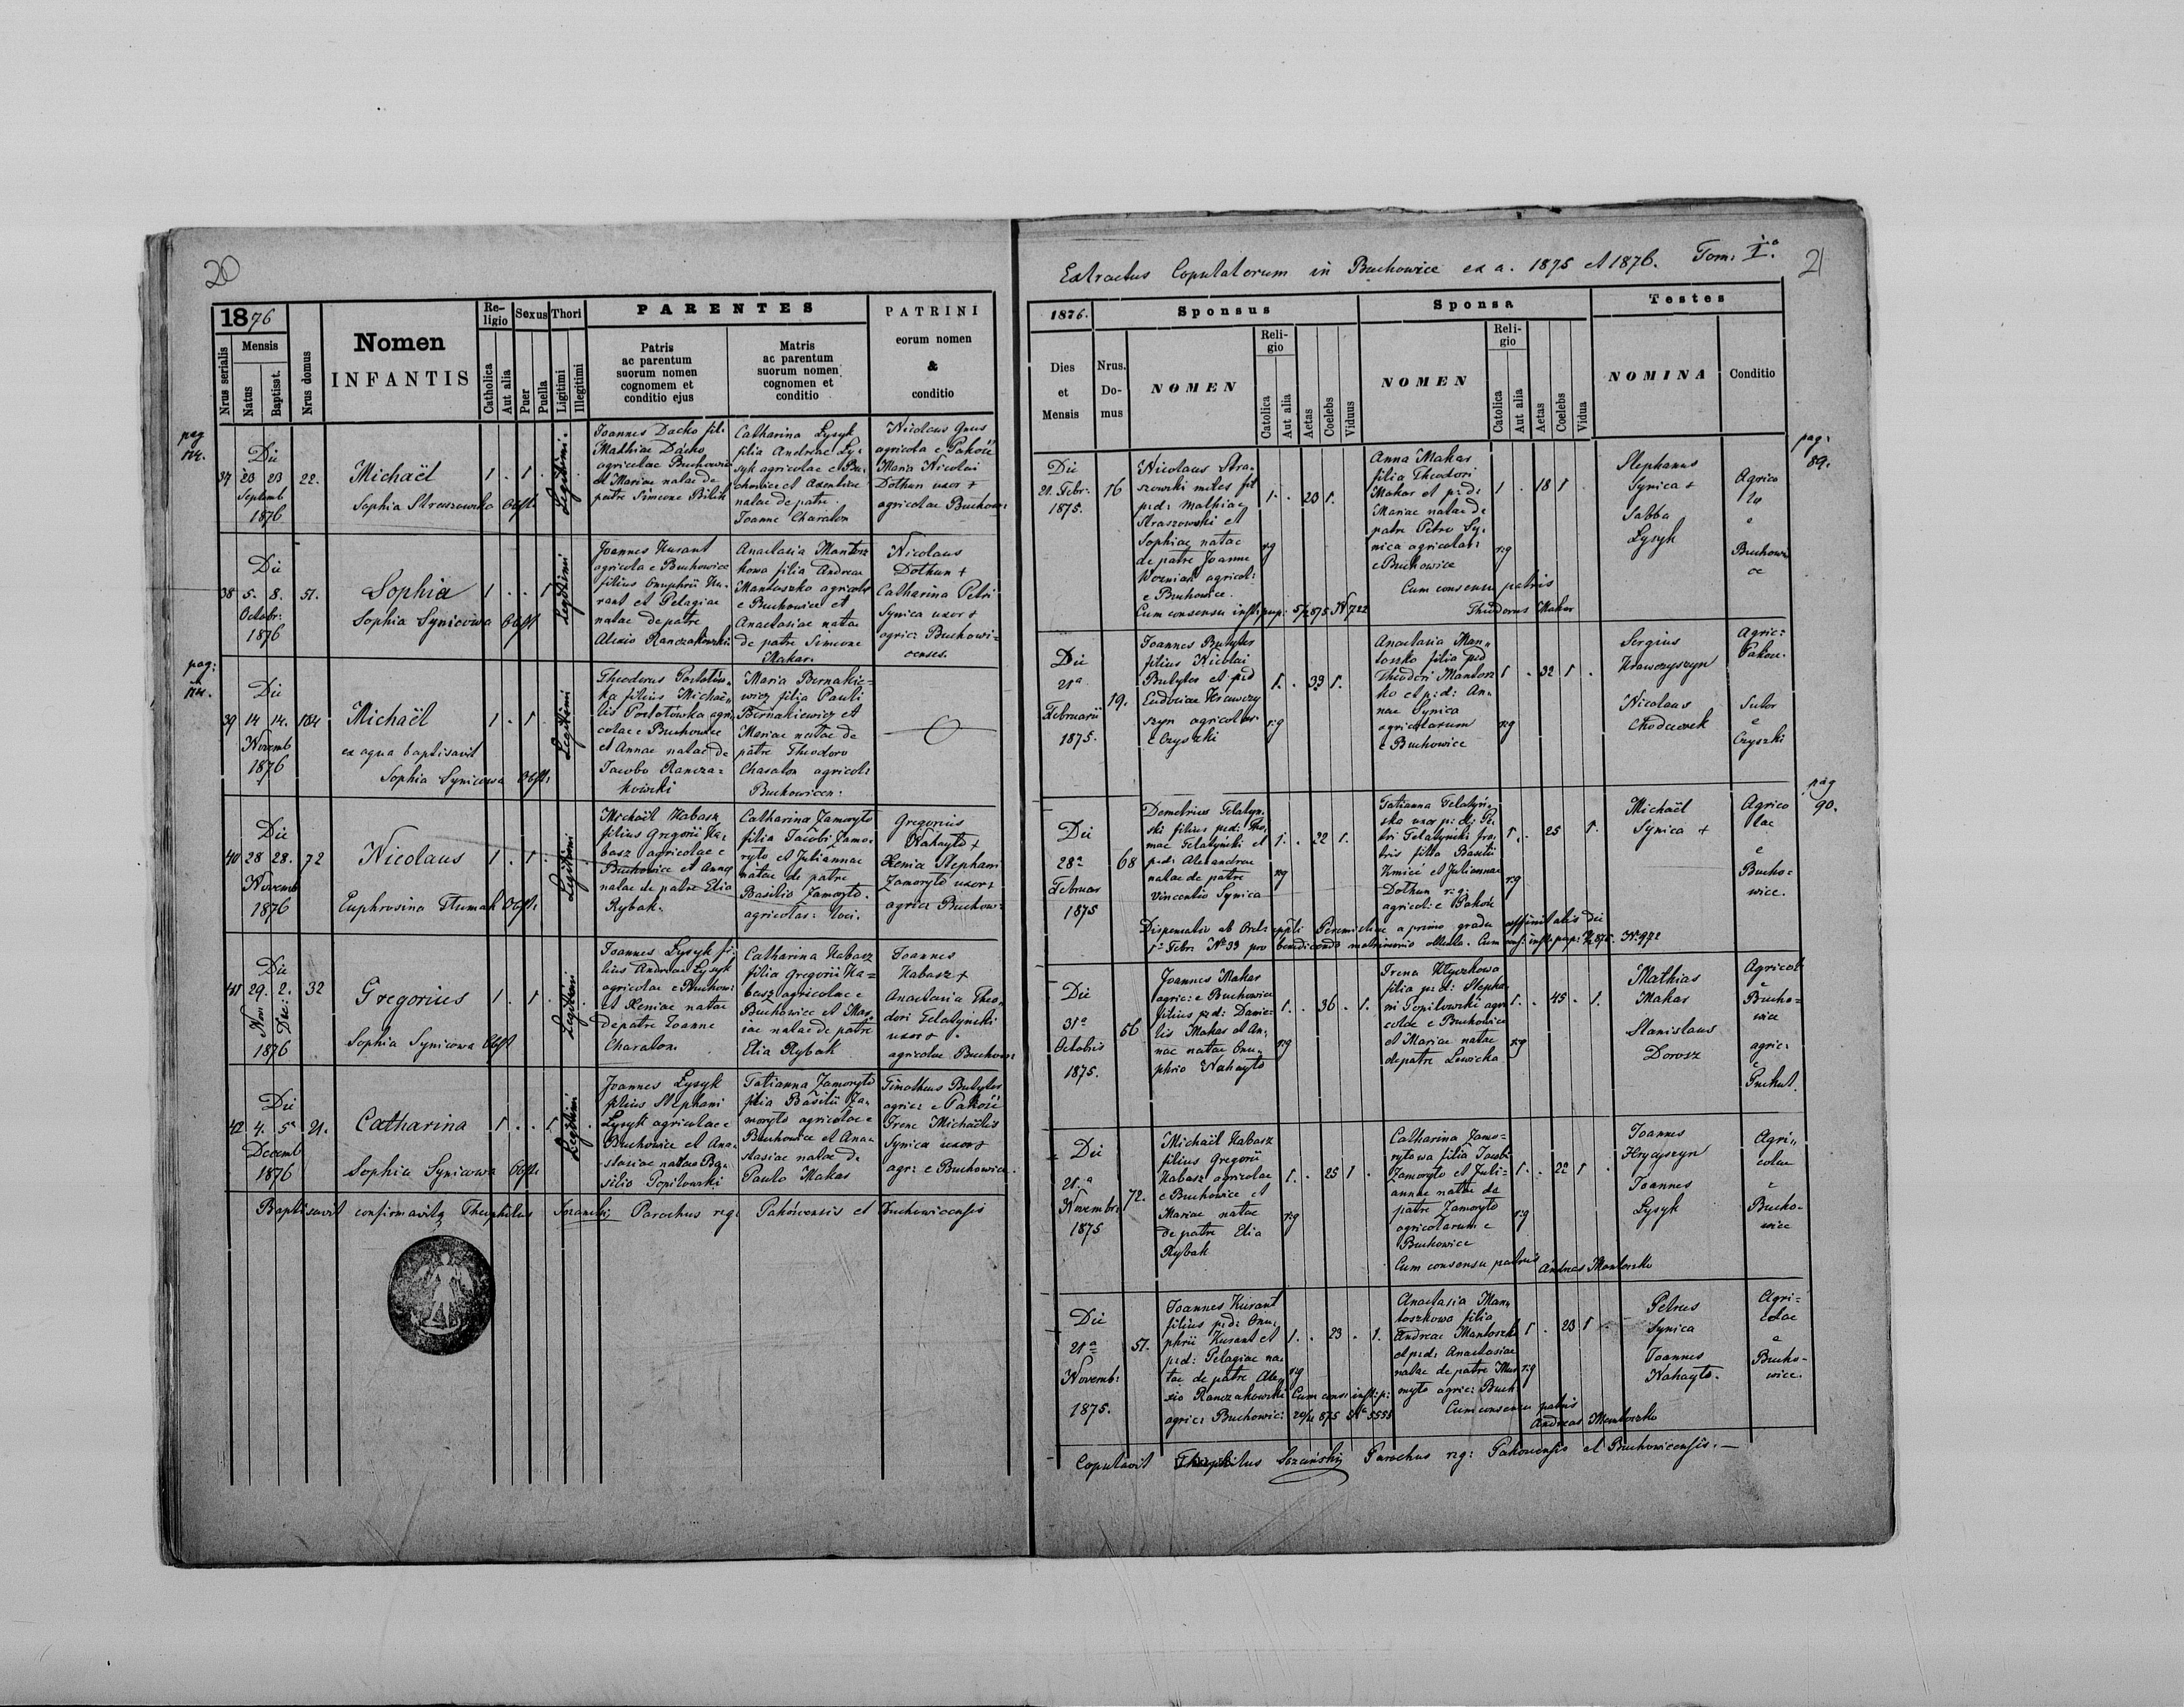 20
1876
Nrus serialis
Mensis
Natus
Baptisat.
Nrus domus
Nomen
INFANTIS
Religio
Catholica
Aut alia
Sexus
Puer
Puella
Thori
Ligitimi
Illegitimi
PARENTES
Patris
ac parentum
suorum nomen
cognomen et
conditio ejus
Matris
ac parentum
suorum nomen
cognomen et
conditio
PATRINI
eorum nomen
&
conditio
pag
37
Die
23 23
Septemb
1876
22.
Michaël
Sophia Straszowska Obst:
1 . 1 .
Legitimi.
Joannes Dacko fili
Mathiae Dacko
agricolae Buchowic
et Mariae natae de
patre Simeone Bilik
Catharina Łysyk
filia Andreae Ły-
syk agricolae e Bu-
chowice et Axentiae
natae de patre
Joanne Charaton
Nicolaus Gnus
agricola e Pakość
Maria Nicolai
Dothun uxor +
agricolae Buchow:
38
Die
5. 8.
Octobr:
1876
51.
Sophia
Sophia Synicowa Obst
1 . . 1
Legitimi
Joannes Kurant
agricola e Buchowice
filius Onuphrii Ku-
rant et Pelagiae
natae de patre
Alexio Ranczakowski
Anastasia Mantosz
kowa filia Andreae
Mantoszko agricolae
e Buchowice et
Anastasiae natae
de patre Simeone
Makar.
Nicolaus
Dothun +
Catharina Petri
Synica uxor +
agric: Buchowi-
censes.
pag:
39
Die
14 14.
Novemb
1876
184
Michaël
ex aqua baptisavit
Sophia Synicowa Obst:
1 . 1
Legitimi
Theodorus Postolów-
ka filius Michaë-
lis Postołówka agri
colae e Buchowice
et Annae natae de
Jacobo Rancza-
kowski
Maria Bernakie-
wicz filia Pauli
Bernakiewicz et
Mariae natae de
patre Theodoro
Charaton agricol:
Buchowicen:
40
Die
28 28.
Novemb
1876
72
Nicolaus
Euphrosina Tłumak Obst:
1 . 1
Legitimi
Michaël Habasz
filius Gregorii Ha-
basz agricolae e
Buchowice et Annae
natae de patre Elia
Rybak.
Catharina Zamoryto
filia Jacobi Zamo-
ryto et Juliannae
natae de patre
Basilio Zamoryto.
agricolar: loci.
Gregorius
Nahayto +
Xenia Stephani
Zamoryto uxor +
agric: Buchow:
41
Die
29. 2.
Nov: Dec:
1876
32
Gregorius
Sophia Synicowa Obst
1 . 1 .
Legitimi
Joannes Łysyk fi-
lius Andreae Łysyk
agricolae e Buchow:
et Xeniae natae
de patre Joanne
Charaton.
Catharina Habasz
filia Gregorii Ha-
basz agricolae e
Buchowice et Mar-
iae natae de patre
Elia Rybak
Joannes
Habasz +
Anastasia Theo-
dori Telatyński
uxor +
agricolae Buchow:
42
Die
4. 5ª
Decemb
1876
21.
Catharina
Sophia Synicowa Obst:
1 . . 1 .
Legitimi
Joannes Łysyk
filius Stephani
Łysyk agricolae e
Buchowice et Ana-
stasiae natae Ba-
silio Popilowski
Tatianna Zamoryto
filia Basilii Za-
moryto agricolae e
Buchowice et Ana-
stasiae natae de
Paulo Makar
Timotheus Butyter
agric: e Pakość
Irene Michaëlis
Synica uxor +
agr: e Buchowice.
Baptisavit confirmavitq Theophilus Parochus r:g: Pakościensis et Buchowicensis
Extractus Copulatorum in Buchowice ex a. 1875 et 1876. Tom. I.º
21
1876.
Sponsus
Sponsa
Testes
Dies
et
Mensis
Nrus.
Do-
mus
NOMEN
Religio
Catolica
Aut alia
Aetas
Coelebs
Viduus
NOMEN
Religio
Catolica
Aut alia
Aetas
Coelebs
Vidua
NOMINA
Conditio
pag:
89.
Die
21. Febr:
1875.
16
Nicolaus Stra-
szowski miles fil
p:d: Mathiae
Straszowski et
Sophiae natae
de patre Joanne
Wozniak agricol:
e Buchowice.
1. . 23 1.
r:g
Anna Makar
filia Theodori
Makar et p:d:
Mariae natae de
patre Petro Sy-
nica agricolar:
e Buchowice
1 . 18 1
r:g
Cum consensu patris
Theodorus Makar
Cum consensu inst: pup: 5/2 875 N 722
Stephanus
Synica +
Sabba
Łysyk
Agrico
la
e
Buchowi
ce
Die
21ª
Februarii
1875.
19.
Joannes Butyter
filius Nicolai
Butyter et p:d
Eudociae Krawczy
szyn agricolar
e Czyszki
1. . 33 1.
r:g
Anastasia Man-
toszko filia p:d
Theodori Mantosz
ko et p:d: An-
nae Synica
agricolarum
e Buchowice
1 . 32 1 .
r:g
Sergius
Krawczyszyn
Nicolaus
Chodaczek
Agric:
Pakos.
Sutor
e
Czyszki
pag
90.
Die
28ª
Februar
1875
68
Demetrius Telatyn-
ski filius p:d: Tho-
mae Telatyński et
p:d: Alexandrae
natae de patre
Vincentio Synica
1. . 32 1.
r:g
Tatianna Telatyń-
ska uxor p: d: Pe-
tri Telatyński fra-
tris filia Basilii
Kmicé et Juliannae
Dothun r:g:
agricol: e Pakość
1. . 25 1.
r:g
Michaël
Synica +
Agrico
lae
e
Bucho-
wice.
Dispensatio ab Ord: Peremisliae a primo gradu affinitatis die
1ª Febr: Nº 33 pro benedicendo matrimonio obtenta. Cum cons: inst: pup: 875. Nº 972
Die
31ª
Octobris
1875.
56
Joannes Makar
agric: e Buchowice
filius p:d: Danie-
lis Makar et An-
nae natae Onu-
phrio Nahayto
1. . 36 . 1.
r:g
Irena Kłyczkowa
filia p:d: Stepha-
ni Popilowski agri
colae e Buchowice
et Mariae natae
de patre Lewicka
1. . 45 . 1.
r:g
Mathias
Makar
Stanislaus
Dorosz
Agricol
e
Bucho-
wice
agric:
e
Puchut.
Die
21.ª
Novembr:
1875
72.
Michaël Habasz
filius Gregorii
Habasz agricolae
e Buchowice et
Mariae natae
de patre Elia
Rybak
1. . 25 1 .
r:g
Catharina Zamo-
rytowa filia Jacobi
Zamoryto et Juli-
annae natae de
patre Zamoryto
agricolarum e
Buchowice
1. . 22 1 .
r:g
Cum consensu patruis Andreas Mantoszko
Joannes
Hrycyszyn
Joannes
Łysyk
Agri-
colae
e
Bucho-
wice
Die
21ª
Novemb:
1875.
51.
Joannes Kurant
filius p:d: Onu-
phrii Kurant et
p:d: Pelagiae na-
tae de patre Ale-
xio Ranczakowski
agric: Buchowic:
1. . 23 . 1.
r:g
Cum cons: inst: p:
875 Nº 5555
Anastasia Man-
toszkowa filia
Andreae Mantoszko
et p:d: Anastasiae
natae de patre
agric: Buch:
1 . 23 1
r:g
Cum consensu patris
Andreas Mantoszko
Petrus
Synica
Joannes
Nahayto.
Agri-
colae
e
Bucho-
wice.
Copulavit Theophilus Parochus r:g: Pakoscensis et Buchowicensis.